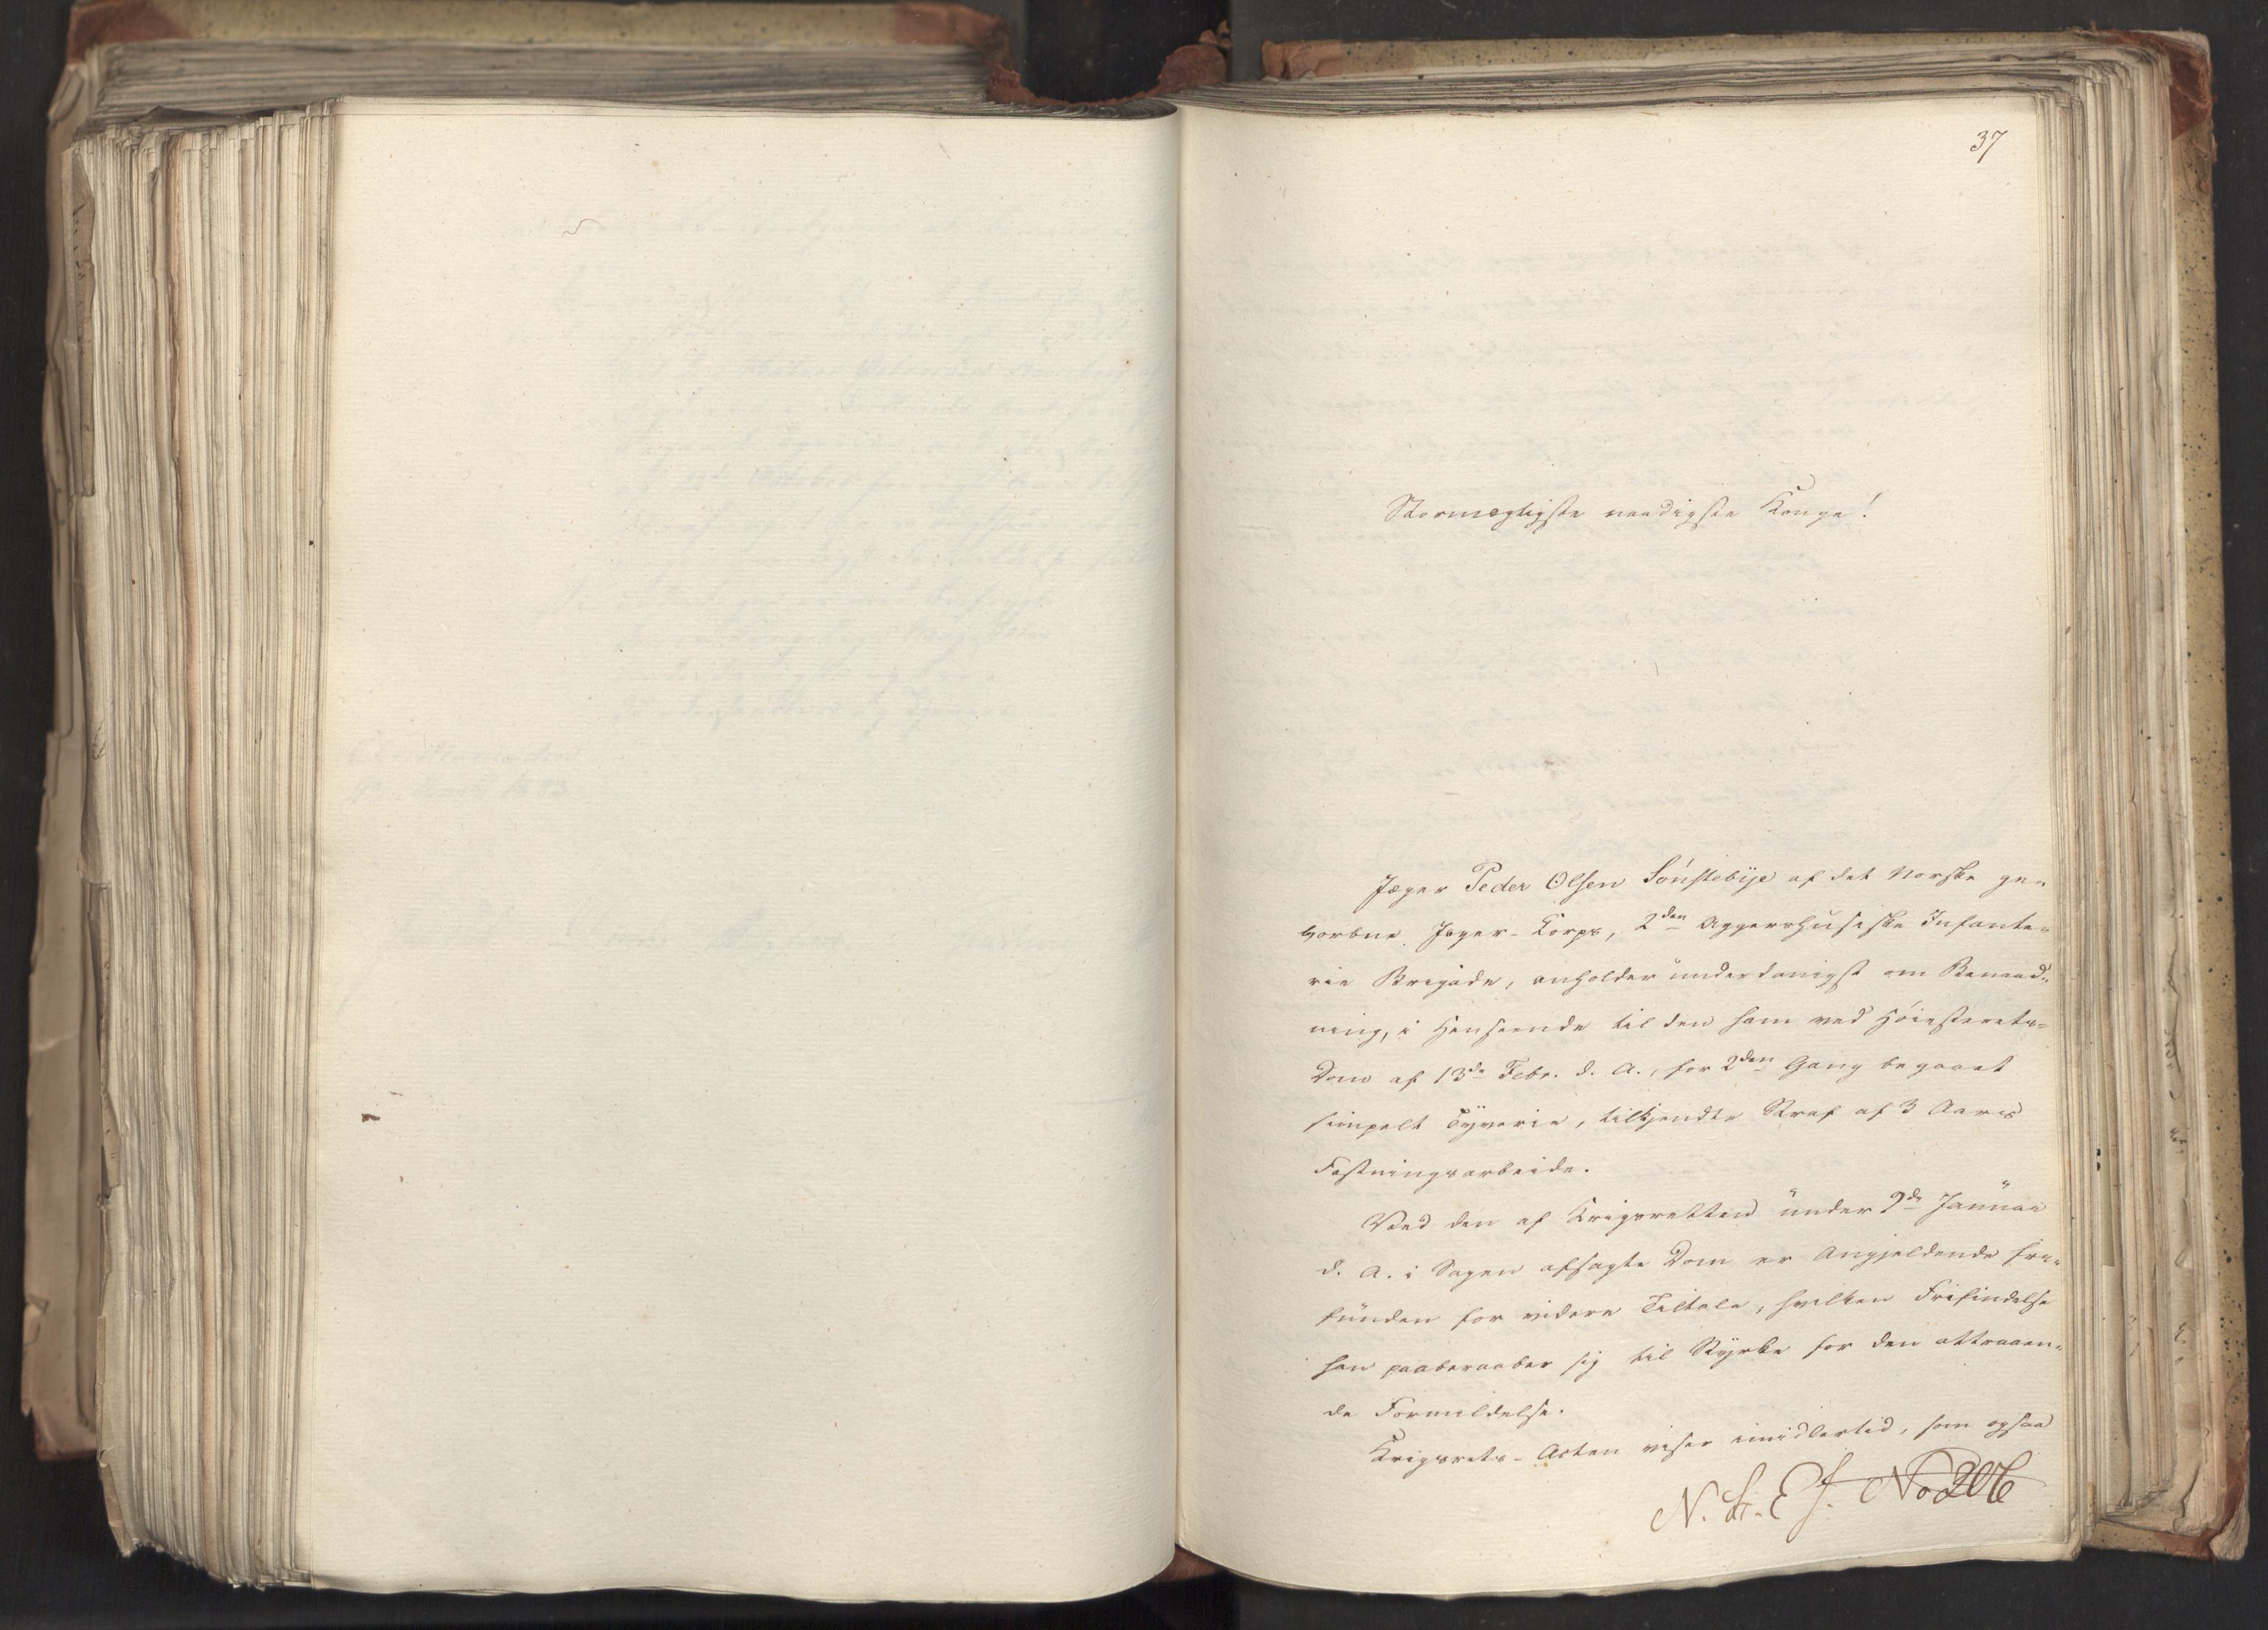 37
Stormægtigste naadigste Konge!
Jæger Peder Olsen Sönstebÿe af det Norske ge=
vorbne Jæger-Korps, 2den Aggershusiske Infante=
rie Brigade, anholder underdanigst om Benaad=
ning, i Henseende til den ham ved Höiesterets=
Dom af 13de Febr. d. A., for 2den Gang begaaet
simpelt Tyverie, tilkjendte Straf af 3 Aars
Fæstningsarbeide.
Ved den af Krigsretten under 2de Januar
d. A. i Sagen afsagte Dom er Angjeldende fri=
funden for videre Tiltale, hvilken Frifindelse
han paaberaaber sig til Styrke for den attraaen=
de Formildelse.
Krigsrets-Acten viser imidlertid, som ogsaa
N. St. Ef. No 206